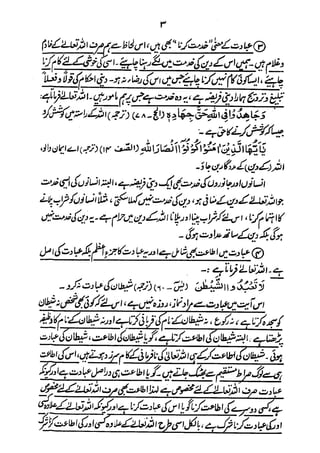 ۳
(۳) عبادت کے معنی "خدمت کرنا" بھی ہیں، اس لحاظ سے ہم صرف اللہ تعالےٰ کے خادم
و غلام ہیں۔ ہمیں اس کے دین کی خدمت میں لگے رہنا چاہیئے۔ اسی کی خوشی کے لئے کام کرنا
چاہیئے، ایسا کوئی کام نہیں کرنا چاہیئے جس میں اس کی رضاء نہ ہو۔ دینی احکام کی قولاً و فعلاً
تبلیغ و ترویج ہمارا دینی فریضہ ہے، یہ وہ خدمت ہے جس پر ہم مامور ہیں۔ اللہ تعالےٰ فرماتا ہے:
وَجَاهِدُوا فِی اللهِ حَقَّ جِهَادِهٖ (الحج - ۷۸) (ترجمہ) اللہ کے راستہ میں کوشش کرو
جیسا کہ کوشش کرنے کا حق ہے۔
یٰۤاَیُّهَا الَّذِیْنَ اٰمَنُوْا كُوْنُوْۤا اَنْصَارَ اللهِ (الصف ۱۴) (ترجمہ) اے ایمان والو،
اللہ (کے دین) کے مددگار بن جاؤ۔
انسانوں اور جانوروں کی خدمت بھی ایک دینی فریضہ ہے، البتہ انسانوں کی ایسی خدمت
جو اللہ تعالےٰ کے دین کے منافی ہو، دین کی خدمت نہیں کہلا سکتی، مثلاً انسانوں کو شراب پلانے
کا اہتمام کرنا، اس لئے کہ شراب پینا اور پلانا اللہ کے دین میں حرام ہے۔ یہ دین کی خدمت نہیں
ہوگی بلکہ دین کے ساتھ عداوت ہوگی۔
(۴) عبادت میں اطاعت بھی شامل ہے اور یہ عبادت کا جزءِ اعظم بلکہ عبادت کی اصل
ہے۔ اللہ تعالےٰ فرماتا ہے:۔
لَا تَعْبُدُوا الشَّیْطٰنَ (یٰسٓ - ۶۰) (ترجمہ) شیطان کی عبادت نہ کرو۔
اس آیت میں عبادت سے مراد نماز، روزہ نہیں ہے، اس لئے کہ کوئی بھی شخص نہ شیطان
کو سجدہ کرتا ہے، نہ رکوع، نہ شیطان کے نام کی قربانی کرتا ہے اور نہ شیطان کے نام کا وظیفہ
پڑھتا ہے۔ البتہ شیطان کی اطاعت کرتا ہے، گویا شیطان کی اطاعت ہی، شیطان کی عبادت
ہوئی۔ شیطان کی اطاعت کر کے ہی اللہ تعالیٰ کی نافرمانی کے کام سرزد ہوتے ہیں، اس کی اطاعت
ہی سے لوگ صراط مستقیم سے بھٹک جاتے ہیں۔ گویا اطاعت ہی دراصل عبادت ہے اور کیونکہ
عبادت صرف اللہ تعالےٰ کے لئے مخصوص ہے لہٰذا اطاعت بھی صرف اللہ تعالےٰ کے لئے مخصوص
ہے، کسی دوسرے کی اطاعت کرنا گویا اس کی عبادت کرنا ہے اور کیونکہ اللہ تعالےٰ کے علاوہ
اور کی عبادت کرنا شرک ہے، بالکل اسی طرح اللہ تعالےٰ کے علاوہ کسی اور کی اطاعت کرنا شرک